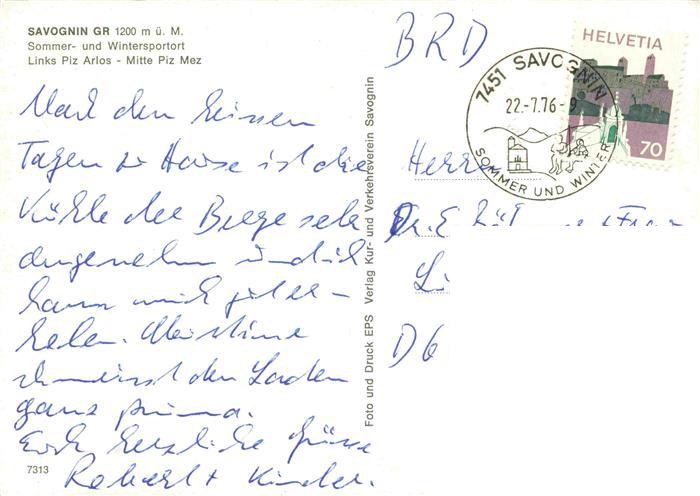 SAVOGNIN GR 1200 m ü. M.
Sommer- und Wintersportort
Links Piz Arlos - Mitte Piz Mez
Nach den heissen
Tagen zu Hause ist die
Kühle der Berge sehr
angenehm und ich
kann mich gut er-
holen. 
schmeisst den Laden
ganz prima.
Euch herzliche Grüsse
Robert + Kinder.
7313
Foto und Druck EPS Verlag Kur- und Verkehrsverein Savognin
BRD
7451 SAVOGNIN
22.-7.76-9
SOMMER UND WINTER
HELVETIA
70
Herrn
Dr. E
D6